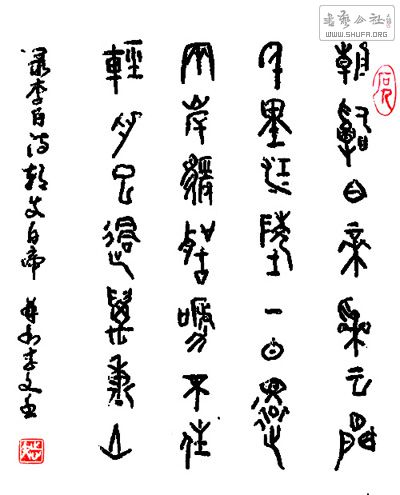 書藝公社
WWW.SHUFA.ORG
朝辭白帝彩雲間
千里江陵一日還
兩岸猿聲啼不住
輕舟已過萬重山
錄李白詩朝發白帝 李文